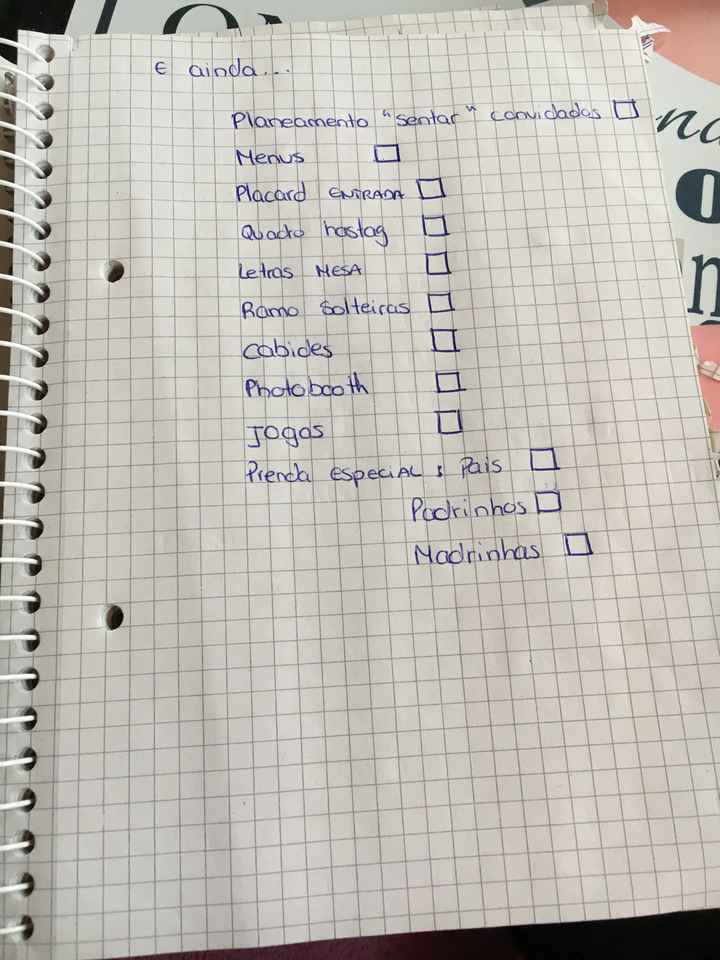 E ainda...
Planeamento "sentar" convidados
Menus
Placard ENTRADA
Quadro hastag
Letras MESA
Ramo Solteiras
Cabides
Photobooth
Jogos
Prenda especial: Pais
Padrinhos
Madrinhas